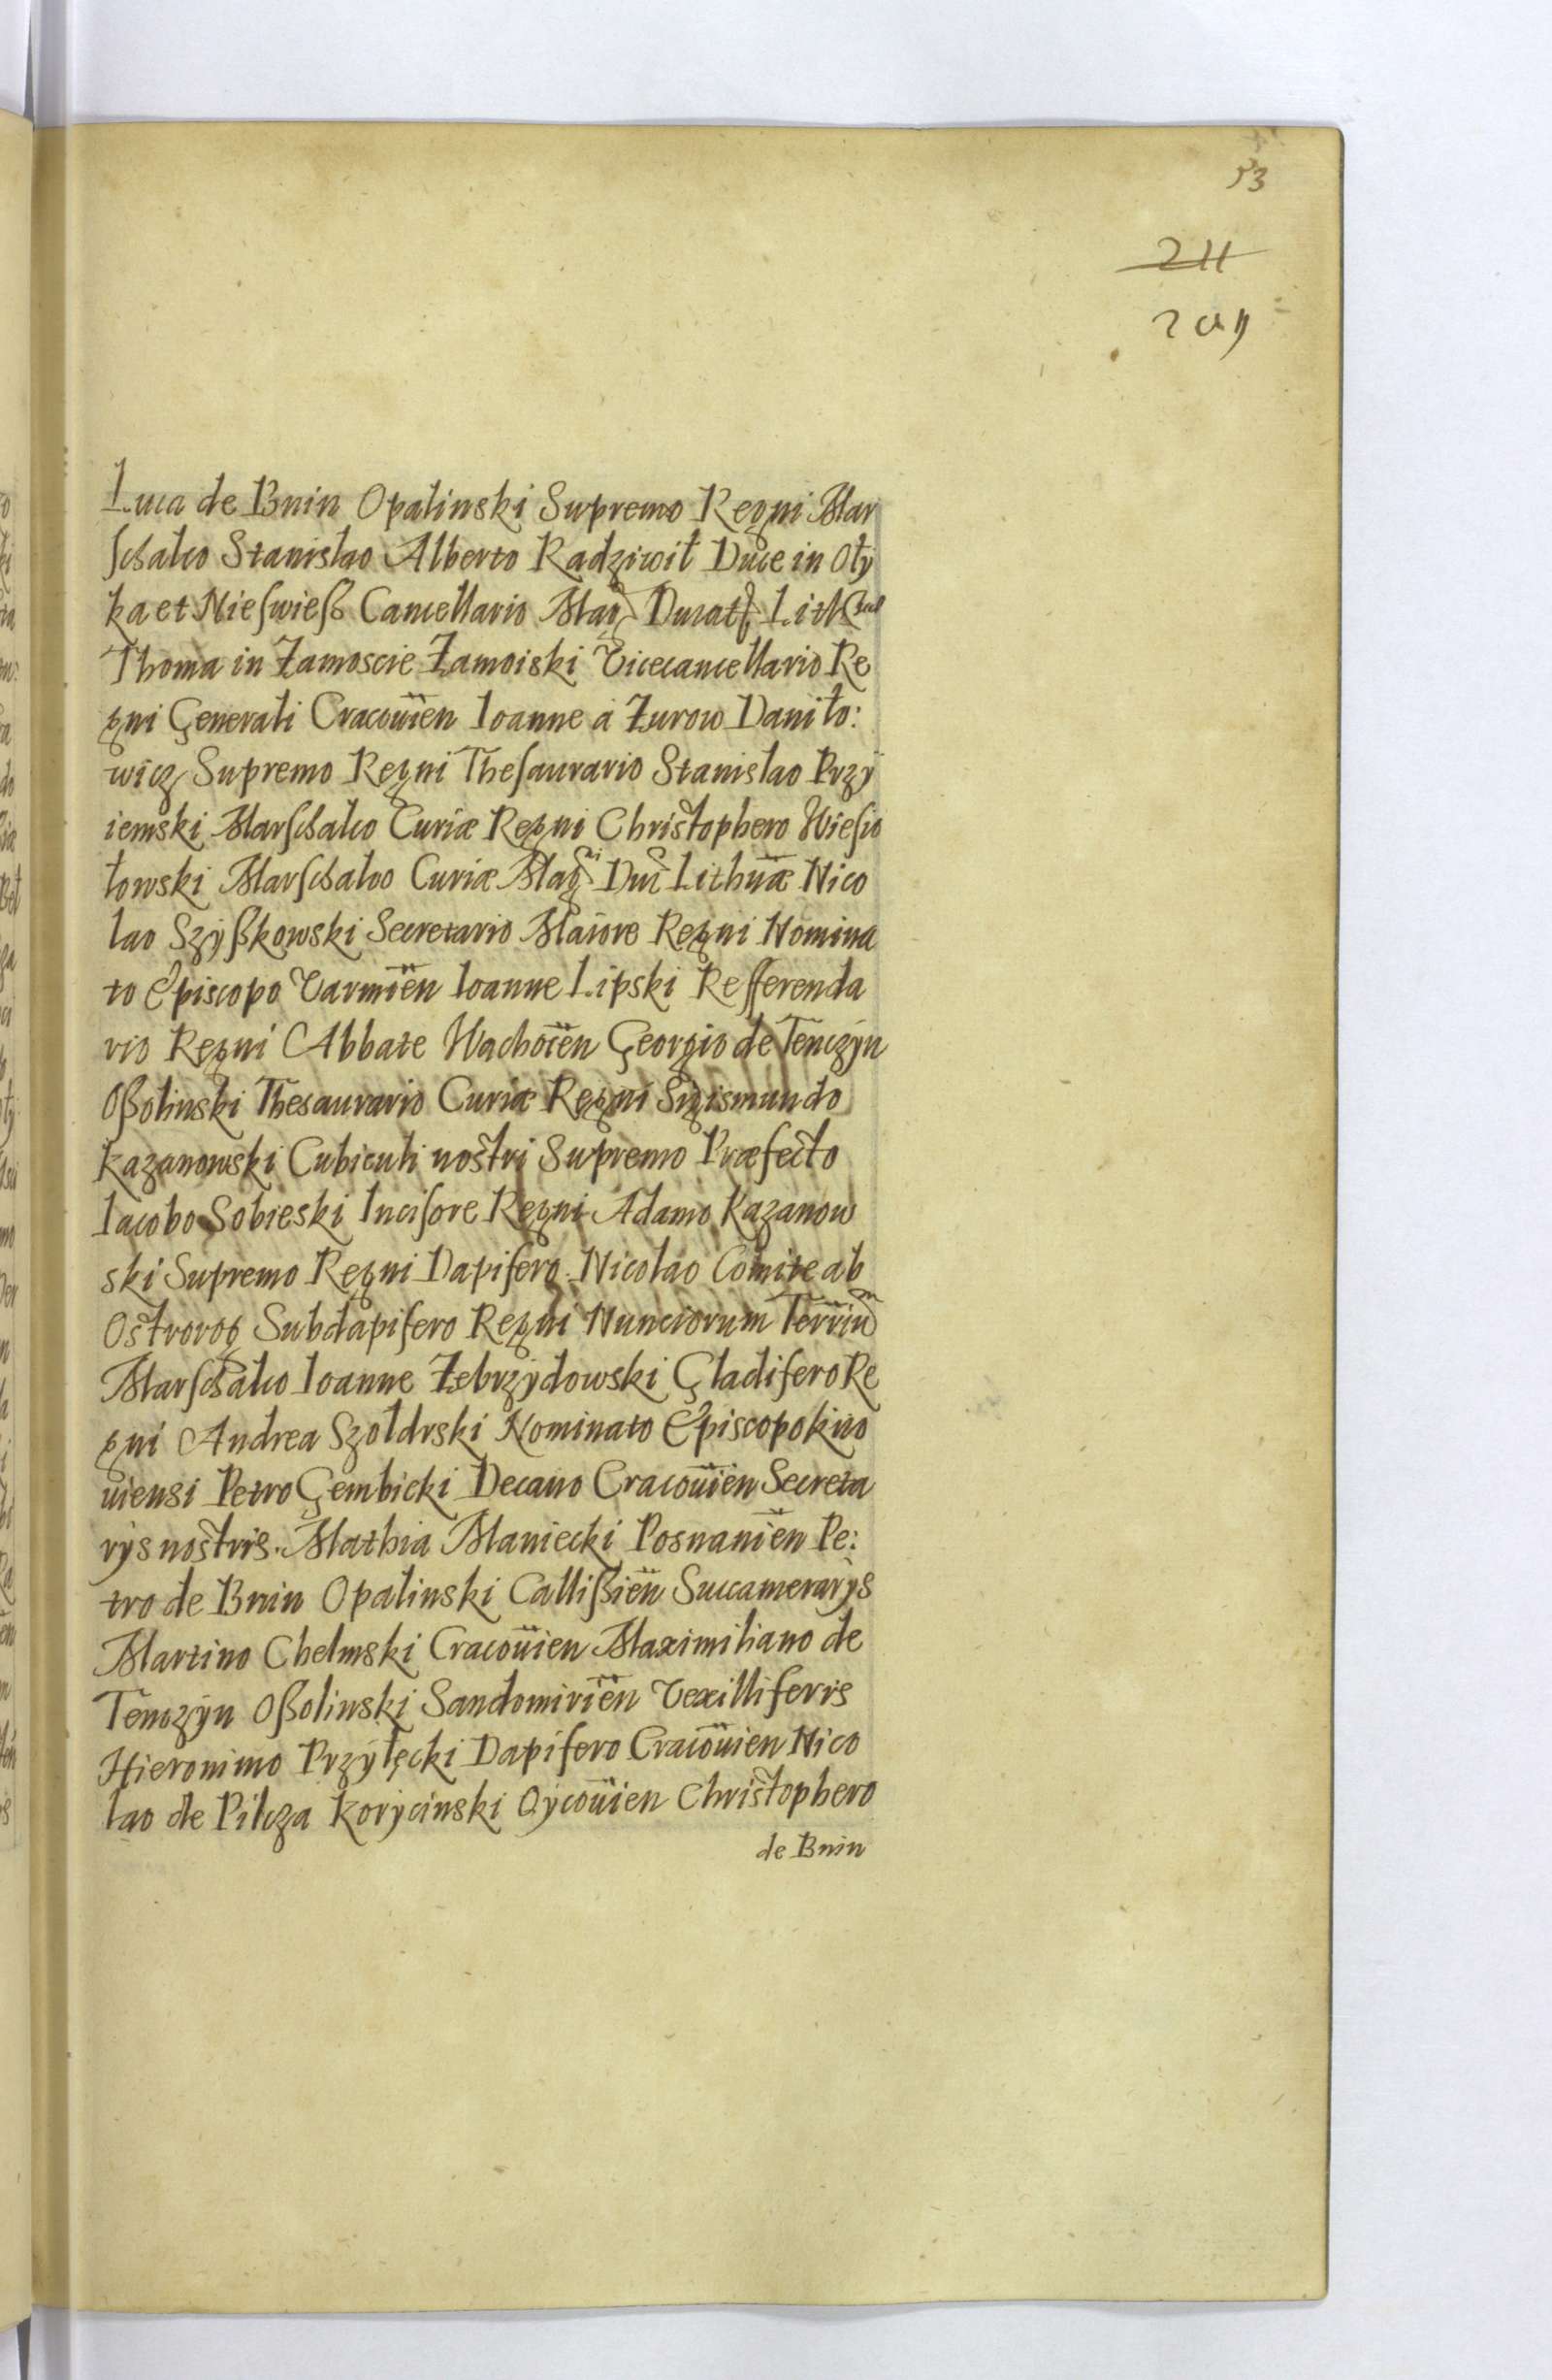 53
211
209
Luca de Bnin Opalinski Supremo Regni Mar
schalco Stanislao Alberto Radziwił Duce in Oły
ka et Nieſwieß Cancellario Mag Ducat Lith
Thoma in Zamoscie Zamoiski Vicecancellario Re
gni Generali Cracovien Ioanne á Zurow Daniło:
wicz Supremo Regni Theſaurario Stanislao Przÿ
iemski Marſchalco Curiæ Regni Christophero Wieſio
łowski Marſchalco Curiæ Mag Duc Lithuæ Nico
lao Szÿßkowski Secretario Maiore Regni Nomina
to Episcopo Varmien Ioanne Lipski Refferenda
rio Regni Abbate Wachocen Georgio de Tenczÿn
Oßolinski Thesaurario Curiæ Regni Sigismundo
Kazanowski Cubiculi nostri Supremo Præfecto
Iacobo Sobieski Inciſore Regni Adamo Kazanow
ski Supremo Regni Dapifero Nicolao Comite ab
Ostrorog Subdapifero Regni Nunciorum Terriũ
Marſchalco Ioanne Zebrzÿdowski Gladifero Re
gni Andrea Szołdrski Nominato Episcopo Kiio
uiensi Petro Gembicki Decano Cracouien Secreta
rÿs nostris. Mathia Maniecki Posnanien Pe:
tro de Bnin Opalinski Callißien Succamerarÿs
Martino Chelmski Cracouien Maximiliano de
Tenczÿn Oßolinski Sandomirien Vexilliferis
Hieronimo Przÿłęcki Dapifero Cracouien Nico
lao de Pilcza Korÿcinski Oÿcouien Christophero
de Bnin